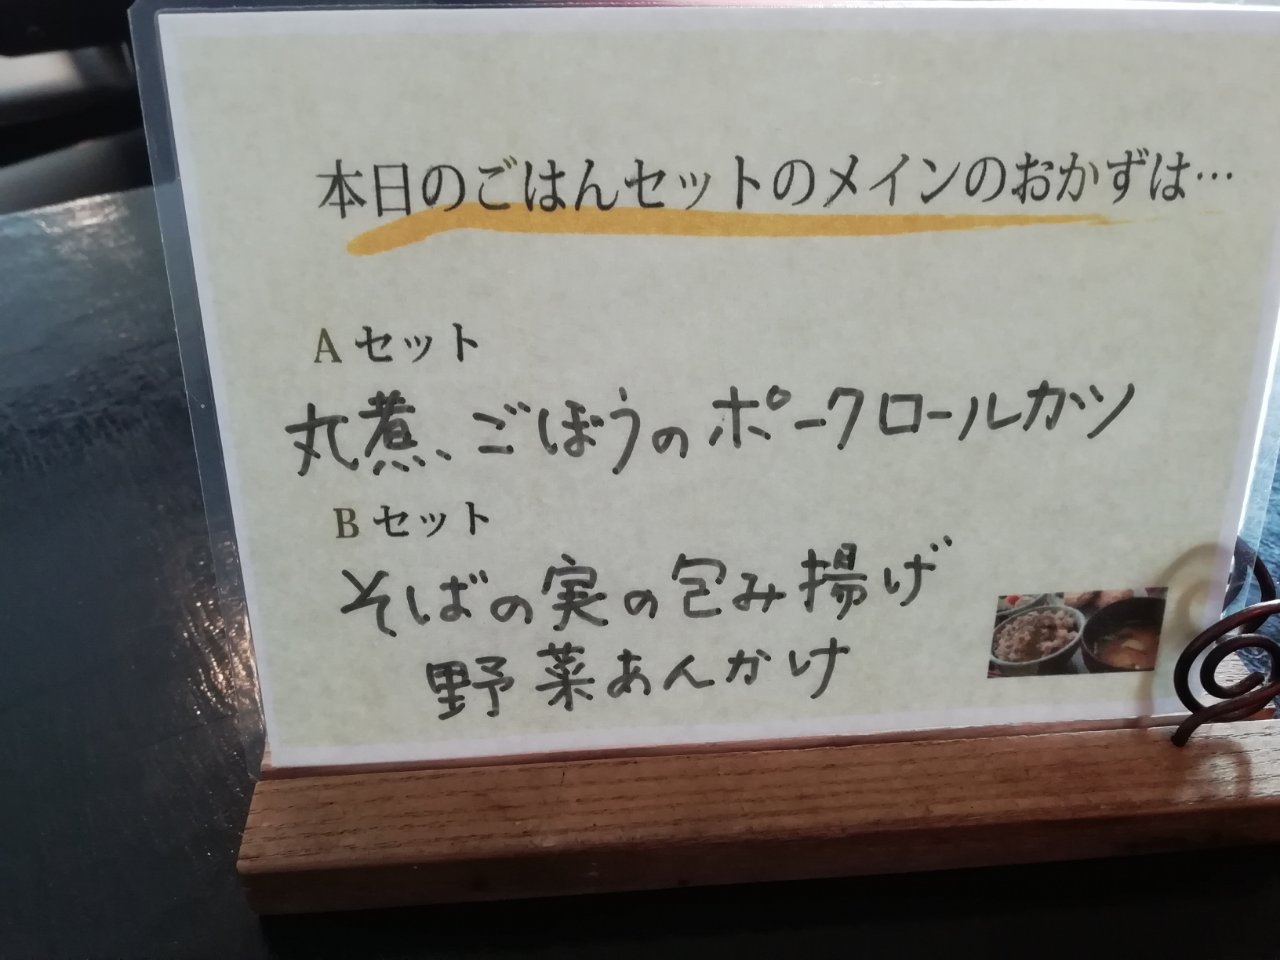 本日のごはんセットのメインのおかずは…
Aセット
丸煮、ごぼうのポークロールカツ
Bセット
そばの実の包み揚げ
野菜あんかけ